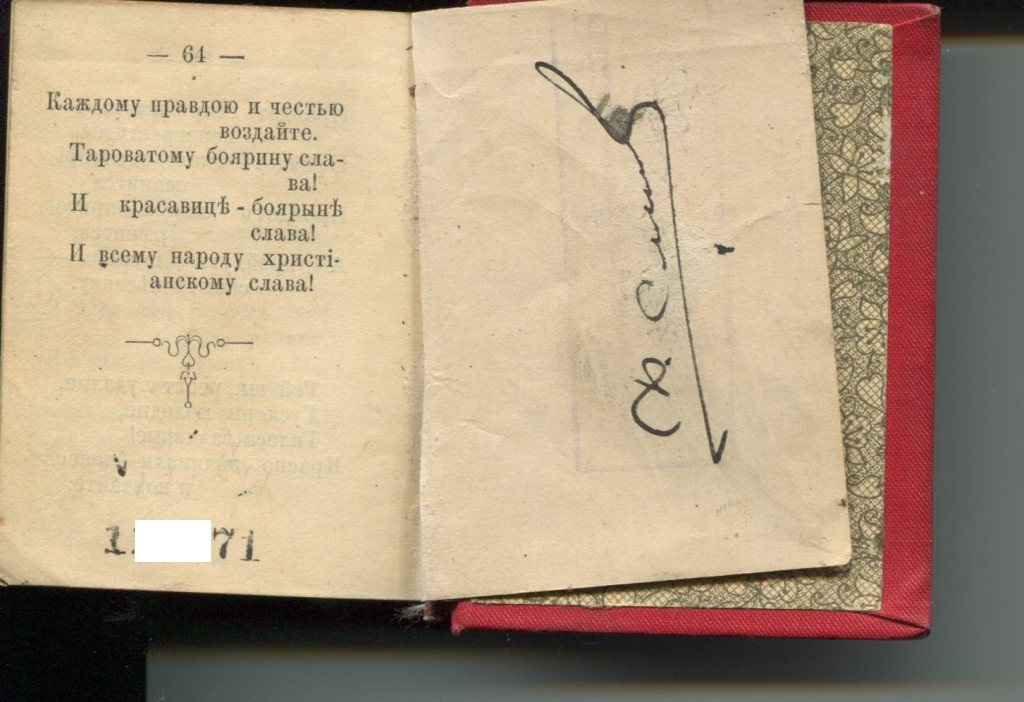 — 64 —
Каждому правдою и честью
воздайте.
Тароватому боярину сла-
ва!
И красавицѣ - боярынѣ
слава!
И всему народу христі-
анскому слава!
1 71